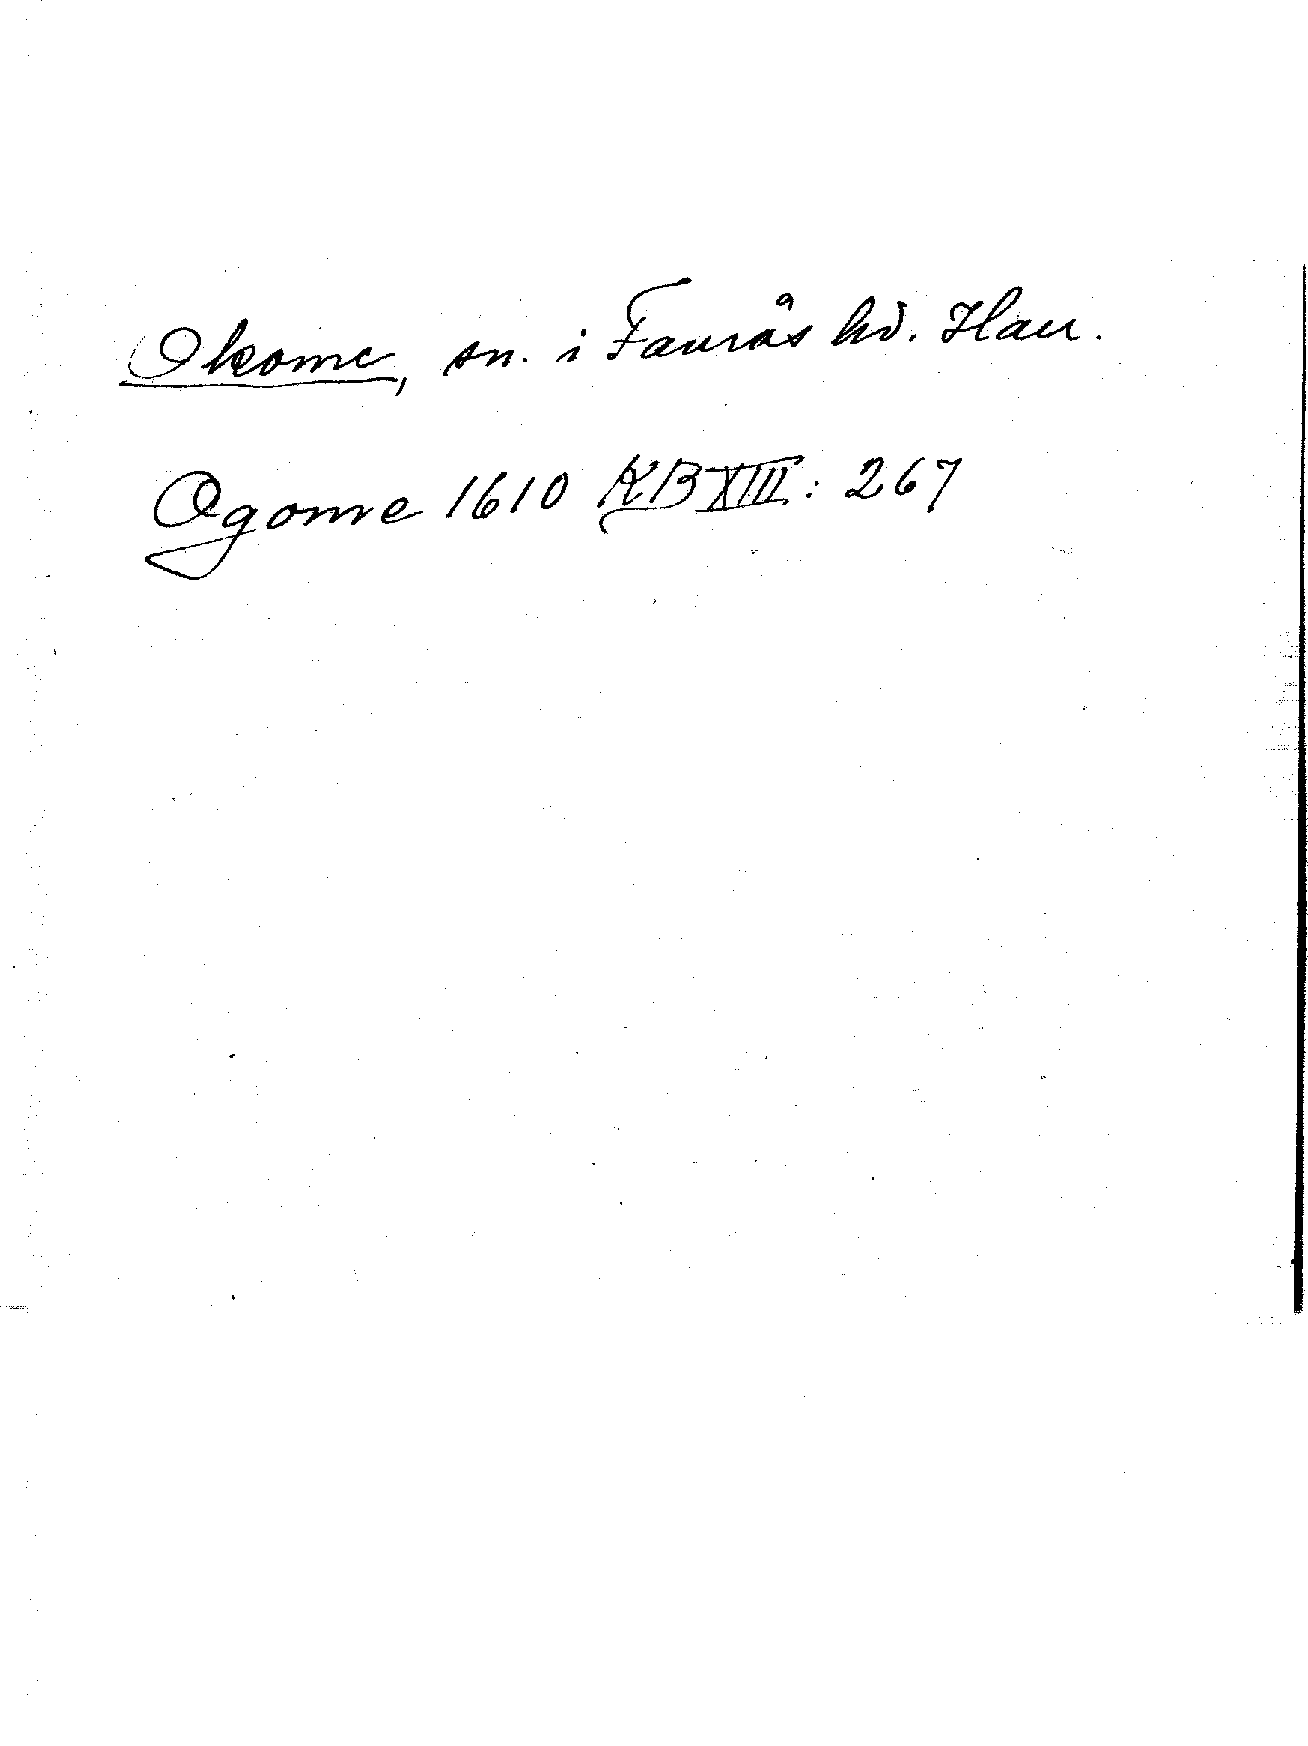 Okome, sn. i Faurås hd. Hall.
Ogome 1610 KB XIII: 267